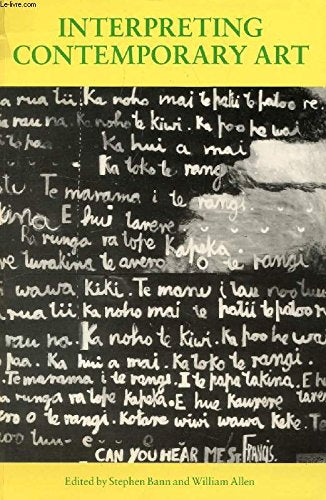 Le-livre.com
INTERPRETING
CONTEMPORARY ART
a rua tii. Ka noho mai te patii te patoo re
rau na. Ka noho te kiwi. Ka poo he wai
te paa. Ka hui a mai
Ka toko te rangi
Te marama i te rangi.
E hui tarere
Ra runga ra tope Kapeka
te turakina te avero o te rangi
i wawa kiki. Te manu i tau
a rua tii Ka noho mai te patii te patoo r
rau na. Ka noho te kiwi. Ka poo he wa
paa. Ka hui a mai. Ka toko te rangi.
Te marama i te rangi. I te papa takina. E hu
a runga ra tope kapeka. E hue Kaurere tar
ero o te rangi. Kotare wiwi wawa keke. T
CAN YOU HEAR ME ST FRANCIS.
Edited by Stephen Bann and William Allen